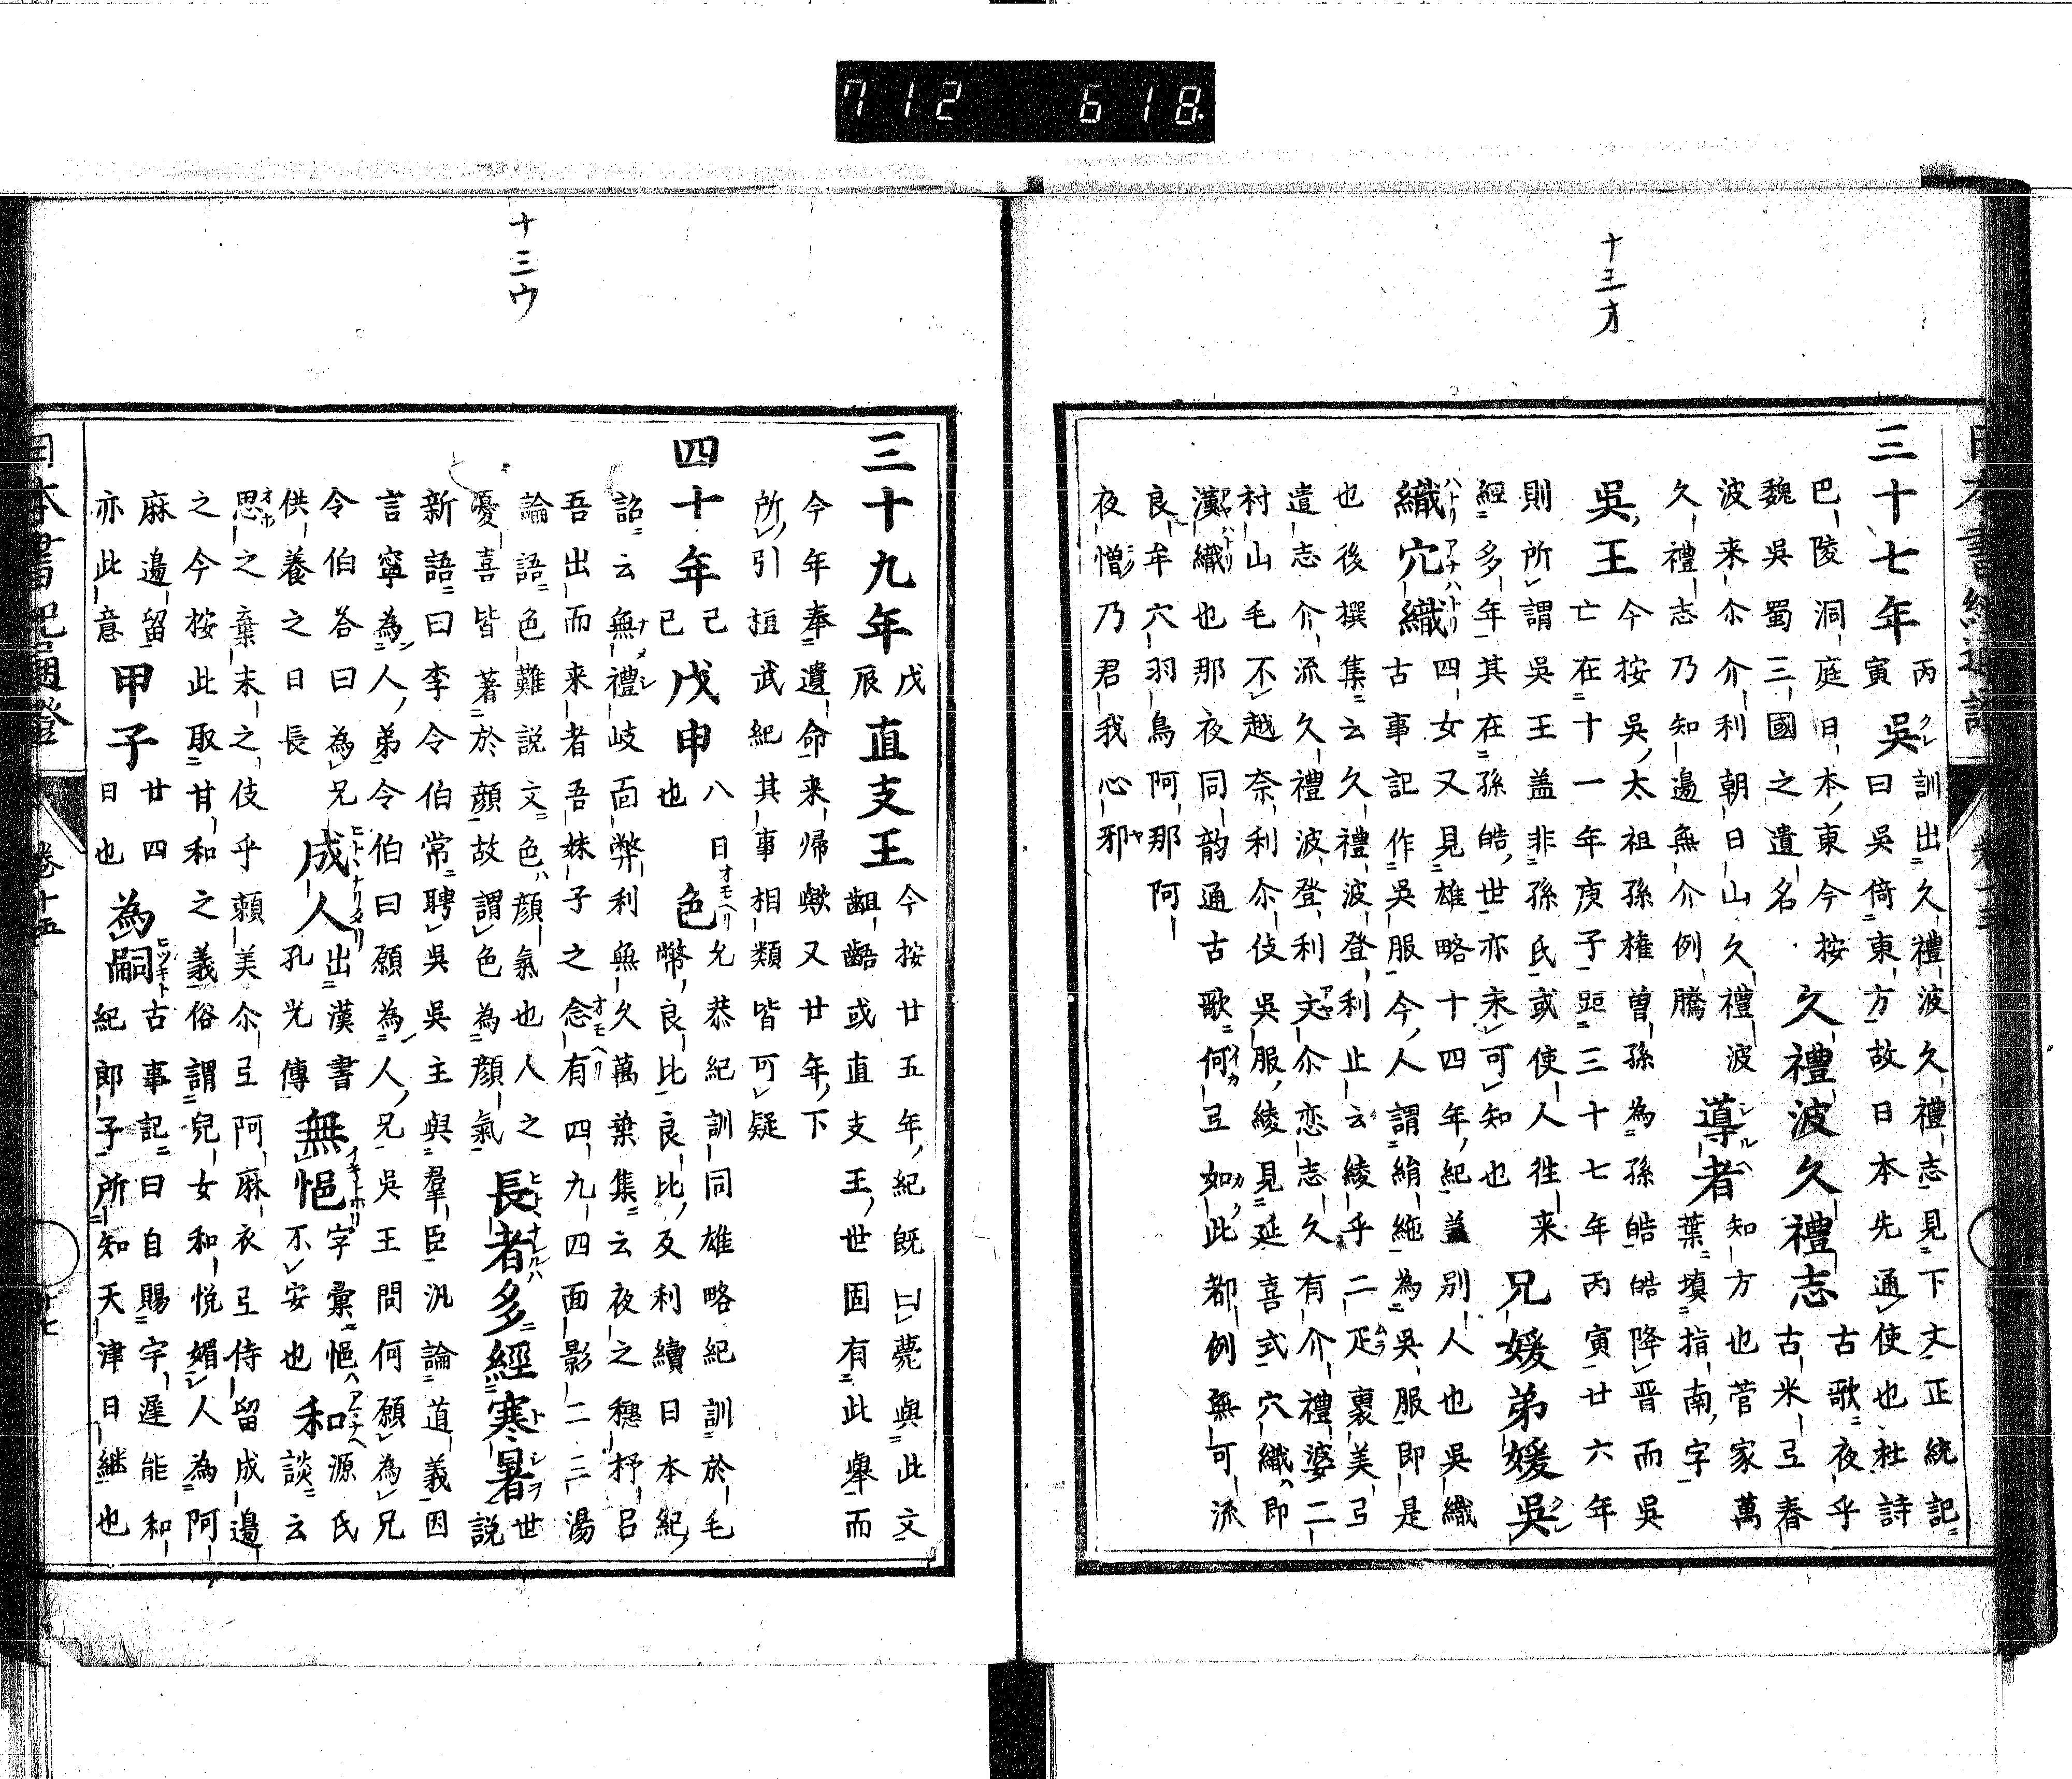 712 618
十三オ
三十七年 丙寅 吳 訓出久禮波久禮志見下文正統記
曰吳倚東方故日本先通使也杜詩
巴陵洞庭日本東今按 久禮波久禮志 古歌夜乎
魏吳蜀三國之遺名 古米弖春
波来尓介利朝日山久禮波 知方也菅家萬
久禮志乃知邊無介例騰 導者 葉塡指南字
吳王 今按吳太祖孫権曽孫為孫皓皓降晋而吳
亡在十一年庚子距三十七年丙寅廿六年
則所謂吳王蓋非孫氏或使人徃来 兄媛弟媛吳
經多年其在孫皓世亦未可知也
織穴織 四女又見雄略十四年紀蓋別人也吳織
古事記作吳服今人謂絹絁為吳服即是
也後撰集云久禮波登利止云綾乎二疋裹美弖
遣志介流久禮波登利文尓恋志久有介禮婆二
村山毛不越奈利尓伎 吳服綾見延喜式穴織即
漢織也那夜同韵通古歌何弖如此都例無可流
良牟穴羽鳥阿那阿
夜憎乃君我心邪
十三ウ
三十九年 戊辰 直支王 今按廿五年紀既曰薨與此文
齟齬或直支王世固有此擧而
今年奉遺命来帰歟又廿年下
所引桓武紀其事相類皆可疑
四十年 己巳 戊申 八日也 色 允恭紀訓同雄略紀訓於毛
幣良比良比反利續日本紀
詔云無禮岐面弊利無久萬葉集云夜之穗杼呂
吾出而来者吾妹子之念有四九四面影二三湯
論語色難説文色顔氣也人之 長者多經寒暑 世説
憂喜皆著於顔故謂色為顔氣
新語曰李令伯常聘吳吳主與羣臣汎論道義因
言寧為人弟令伯曰願為人兄吳王問何願為兄
令伯荅曰為兄供養之日長 成人 出漢書孔光傳 無悒 字彙悒不安也 和 源氏談云
思之棄末之伎乎頼美尓弖阿麻衣弖侍留成邊
之今按此取甘和之義俗謂兒女和悅媚人為阿
麻邊留亦此意 甲子 廿四日也 為嗣 古事記曰自賜宇遅能和
紀郎子所知天津日継也
日本書紀通證 卷十五